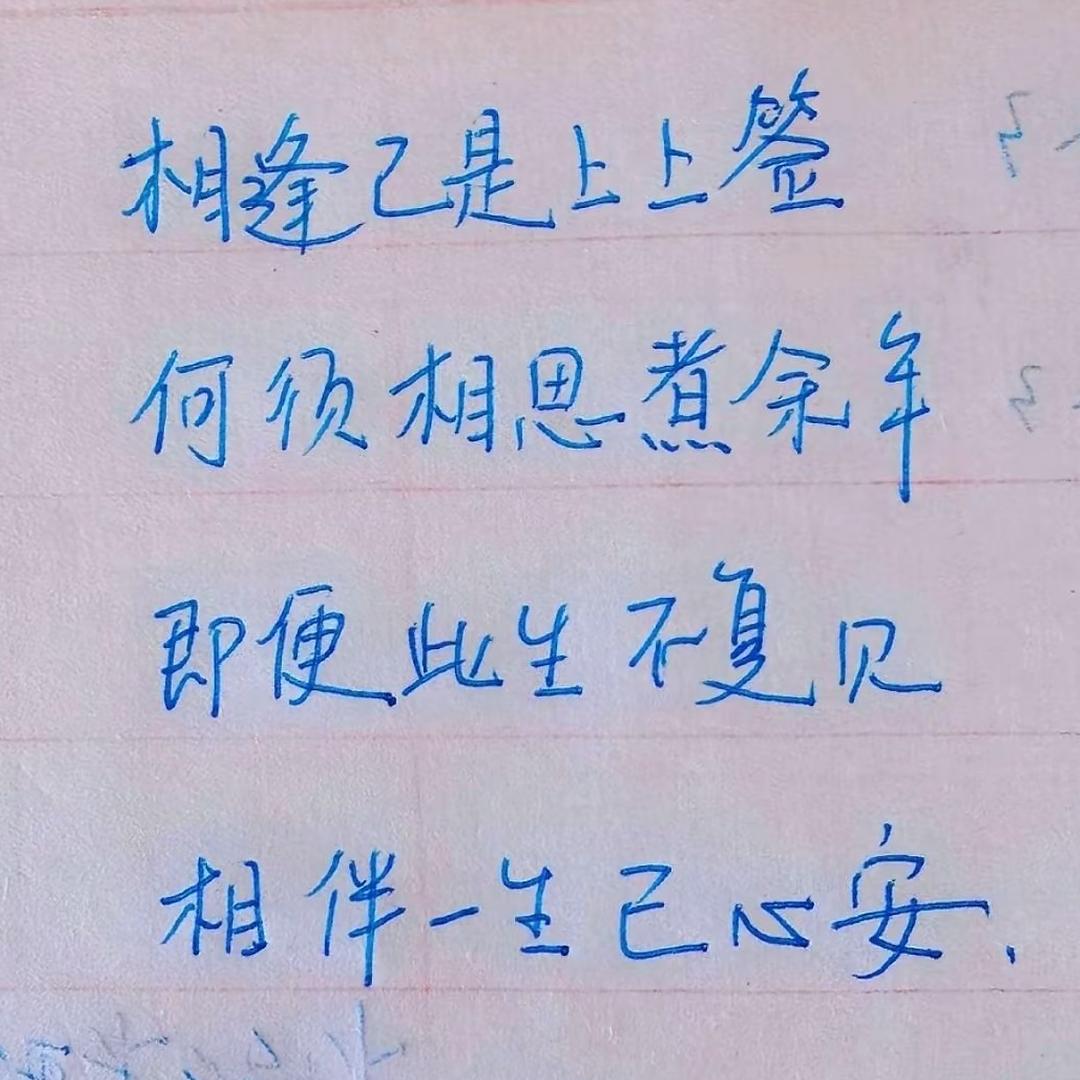 相逢已是上上签
何须相思煮余年
即便此生不复见
相伴一生已心安.